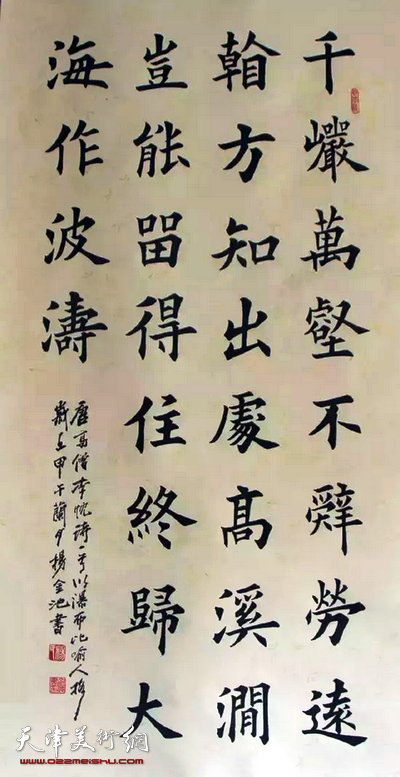 千巗萬壑不辭勞遠
看方知出處髙溪澗
豈能畱得住終歸大
海作波濤
唐高僧李忱詩一首以瀑布比喻人格
歲在甲午蘭月楊金池書
天津美術網
www.022meishu.com